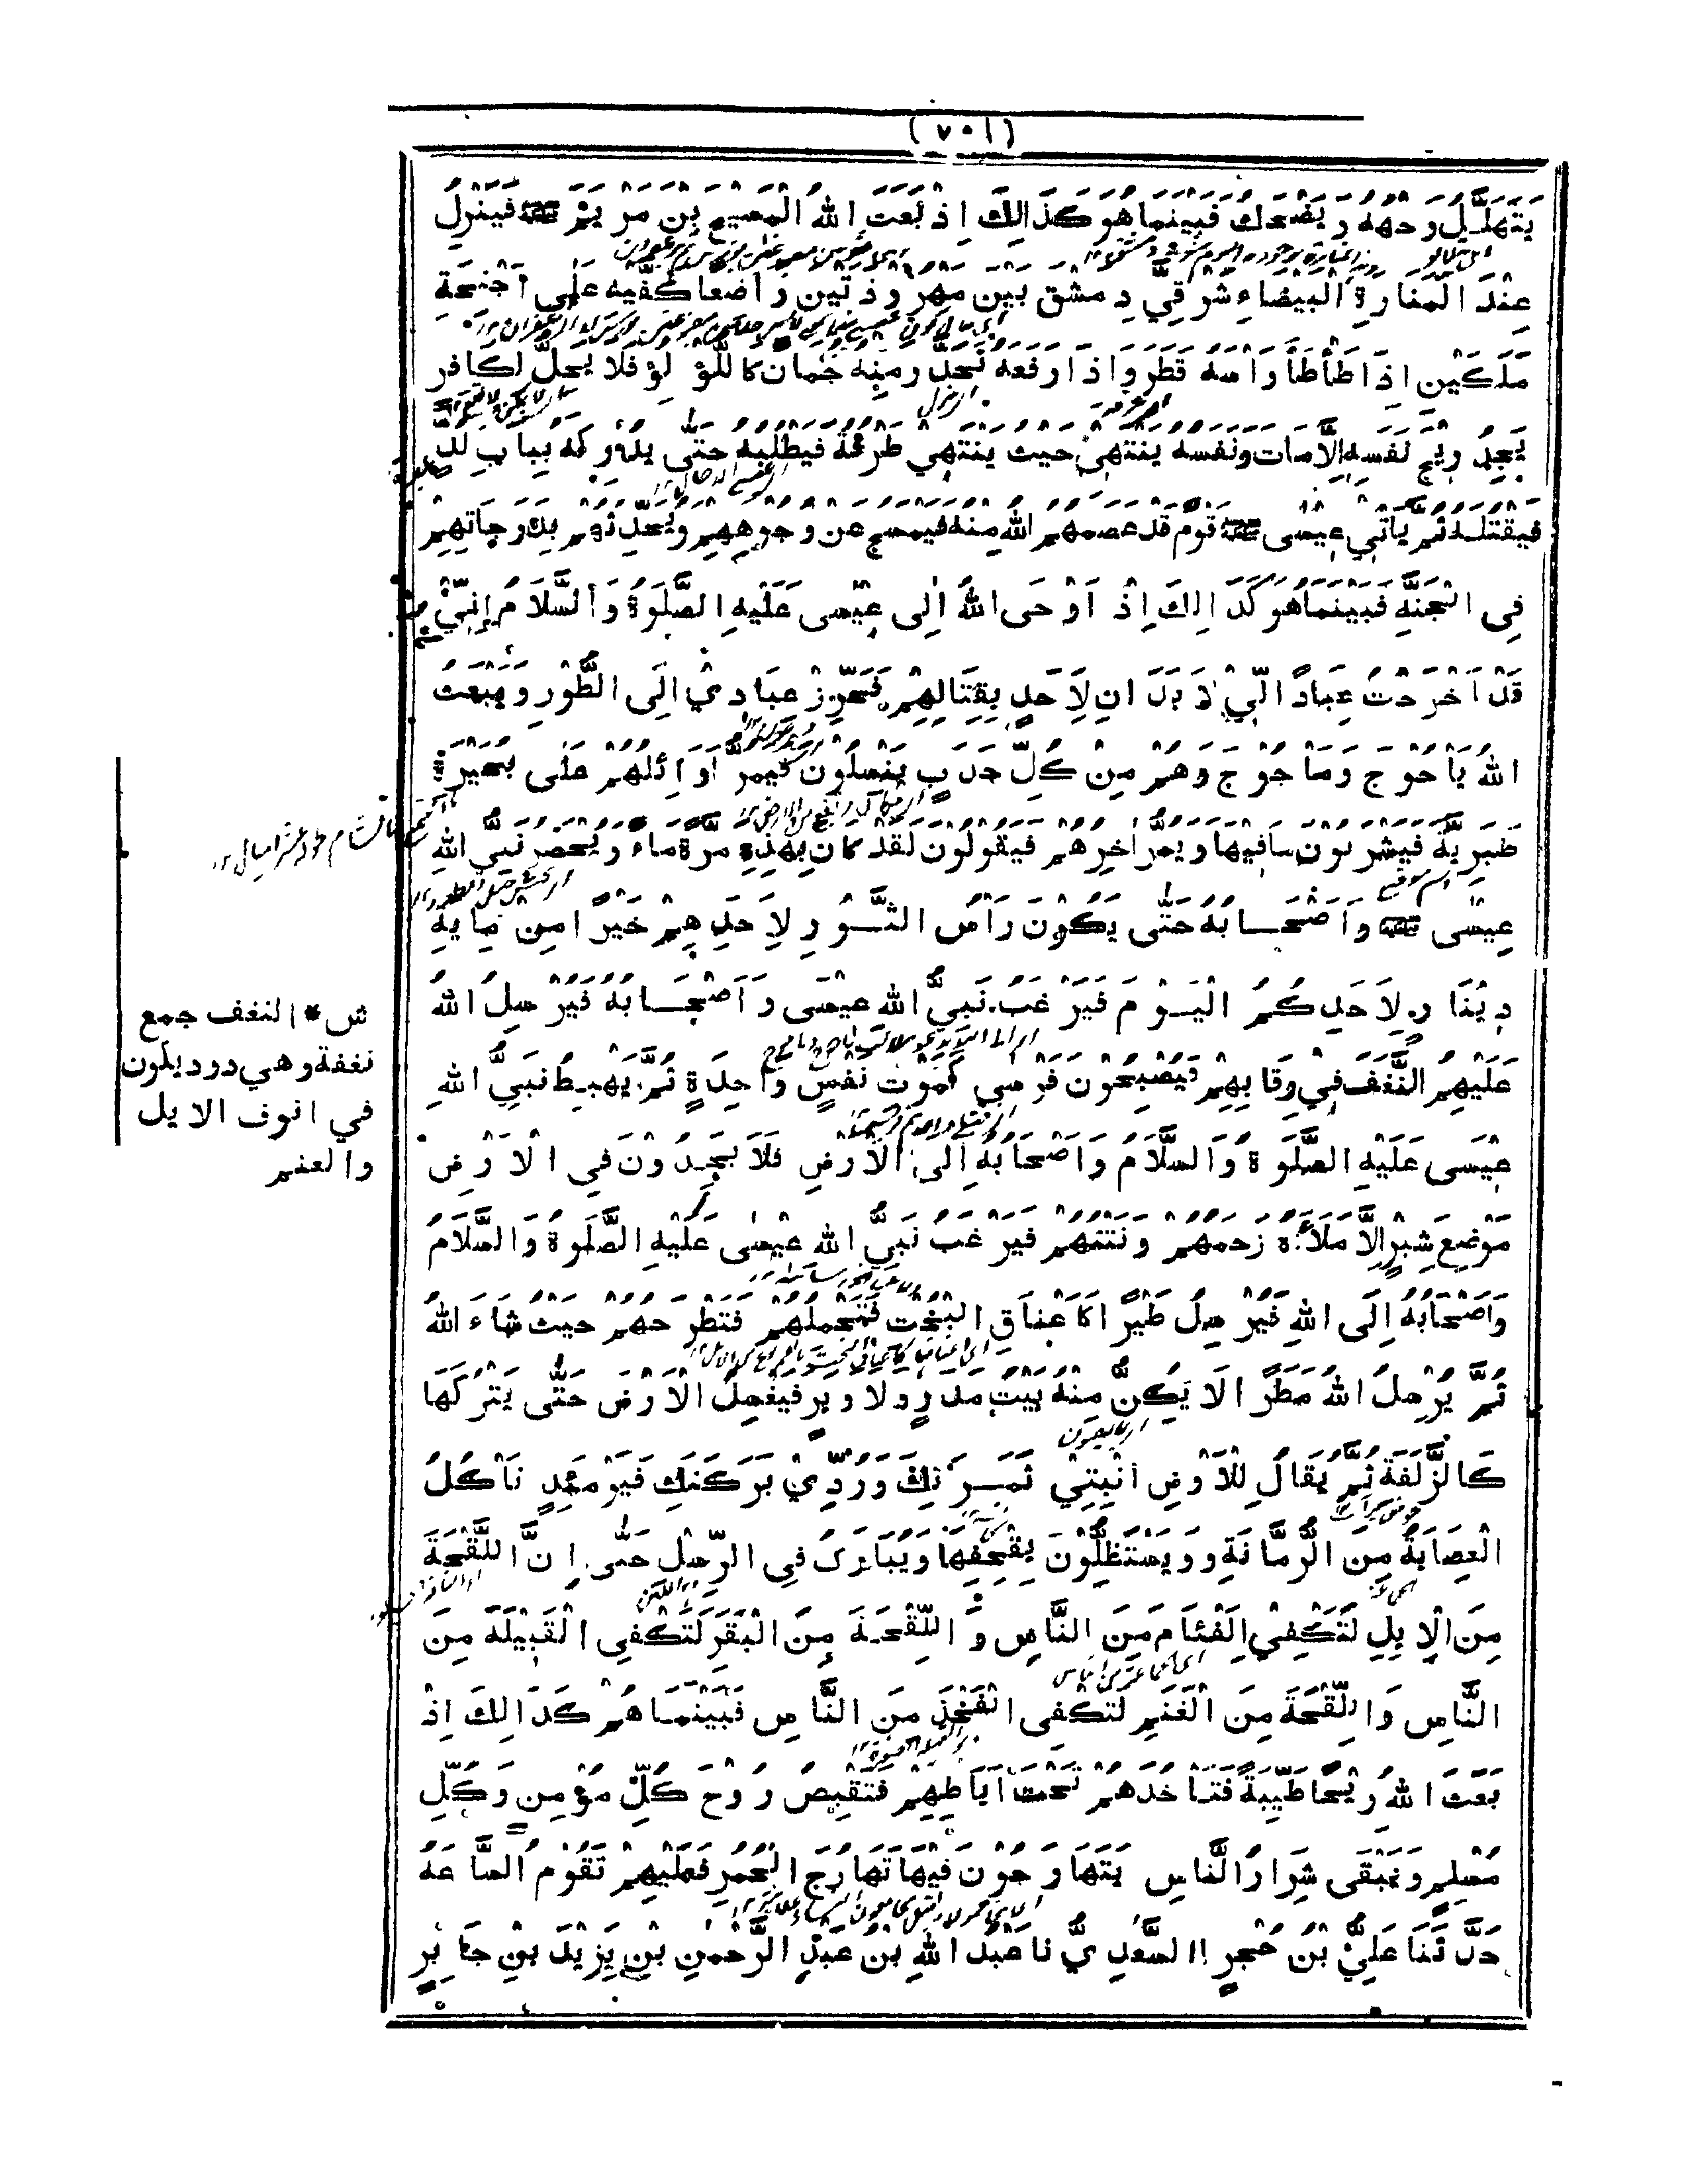 ( ٧٠١ )
يَتَهَلَّلُ وَجْهُهُ وَيَضْحَكُ فَبَيْنَمَا هُوَ كَذَالِكَ اِذْ بَعَثَ اللهُ الْمَسِيحَ بْنَ مَرْيَمَ فَيَنْزِلُ
عِنْدَ الْمَنَارَةِ الْبَيْضَاءِ شَرْقِيَّ دِمَشْقَ بَيْنَ مَهْرُوذَتَيْنِ وَاضِعًا كَفَّيْهِ عَلَى اَجْنِحَةِ
مَلَكَيْنِ اِذَا طَأْطَأَ رَاْسَهُ قَطَرَ وَاِذَا رَفَعَهُ تَحَدَّرَ مِنْهُ جُمَانٌ كَاللُّؤْلُؤِ فَلَا يَحِلُّ لِكَافِرٍ
يَجِدُ رِيحَ نَفَسِهِ اِلَّا مَاتَ وَنَفَسُهُ يَنْتَهِي حَيْثُ يَنْتَهِي طَرْفُهُ فَيَطْلُبُهُ حَتَّى يُدْرِكَهُ بِبَابِ لُدٍّ
فَيَقْتُلُهُ ثُمَّ يَأْتِي عِيْسَى قَوْمٌ قَدْ عَصَمَهُمُ اللهُ مِنْهُ فَيَمْسَحُ عَنْ وُجُوْهِهِمْ وَيُحَدِّثُهُمْ بِدَرَجَاتِهِمْ
فِى الْجَنَّةِ فَبَيْنَمَا هُوَ كَذَالِكَ اِذْ اَوْحَى اللهُ اِلٰى عِيْسٰى عَلَيْهِ الصَّلٰوةُ وَالسَّلَامُ إِنِّيْ
قَدْ اَخْرَجْتُ عِبَادًا لِّيْ لَا يَدَانِ لِاَحَدٍ بِقِتَالِهِمْ فَحَرِّزْ عِبَادِيْ اِلَى الطُّوْرِ وَيَبْعَثُ
اللهُ يَاْجُوْجَ وَمَاْجُوْجَ وَهُمْ مِنْ كُلِّ حَدَبٍ يَنْسِلُوْنَ فَيَمُرُّ اَوَائِلُهُمْ عَلٰى بُحَيْرَةِ
طَبَرِيَّةَ فَيَشْرَبُوْنَ مَا فِيْهَا وَيَمُرُّ اٰخِرُهُمْ فَيَقُوْلُوْنَ لَقَدْ كَانَ بِهٰذِهِ مَرَّةً مَاءٌ وَيُحْصَرُ نَبِيُّ اللهِ
عِيْسٰى وَاَصْحَابُهُ حَتّٰى يَكُوْنَ رَاْسُ الثَّوْرِ لِاَحَدِهِمْ خَيْرًا مِنْ مِايَةِ
دِيْنَارٍ لِاَحَدِكُمُ الْيَوْمَ فَيَرْغَبُ نَبِيُّ اللهِ عِيْسٰى وَاَصْحَابُهُ فَيُرْسِلُ اللهُ
عَلَيْهِمُ النَّغَفَ فِيْ رِقَابِهِمْ فَيُصْبِحُوْنَ فَرْسٰى كَمَوْتِ نَفْسٍ وَاحِدَةٍ ثُمَّ يَهْبِطُ نَبِيُّ اللهِ
عِيْسٰى عَلَيْهِ الصَّلٰوةُ وَالسَّلَامُ وَاَصْحَابُهُ اِلَى الْاَرْضِ فَلَا يَجِدُوْنَ فِى الْاَرْضِ
مَوْضِعَ شِبْرٍ اِلَّا مَلَأَهُ زَهَمُهُمْ وَنَتَنُهُمْ فَيَرْغَبُ نَبِيُّ اللهِ عِيْسٰى عَلَيْهِ الصَّلٰوةُ وَالسَّلَامُ
وَاَصْحَابُهُ اِلَى اللهِ فَيُرْسِلُ طَيْرًا كَاَعْنَاقِ الْبُخْتِ فَتَحْمِلُهُمْ فَتَطْرَحُهُمْ حَيْثُ شَاءَ اللهُ
ثُمَّ يُرْسِلُ اللهُ مَطَرًا لَا يَكُنُّ مِنْهُ بَيْتُ مَدَرٍ وَلَا وَبَرٍ فَيَغْسِلُ الْاَرْضَ حَتّٰى يَتْرُكَهَا
كَالزَّلَفَةِ ثُمَّ يُقَالُ لِلْاَرْضِ اَنْبِتِيْ ثَمَرَتَكِ وَرُدِّيْ بَرَكَتَكِ فَيَوْمَئِذٍ تَاْكُلُ
الْعِصَابَةُ مِنَ الرُّمَّانَةِ وَيَسْتَظِلُّوْنَ بِقِحْفِهَا وَيُبَارَكُ فِى الرِّسْلِ حَتّٰى اِنَّ اللِّقْحَةَ
مِنَ الْاِبِلِ لَتَكْفِيْ الْفِئَامَ مِنَ النَّاسِ وَاللِّقْحَةَ مِنَ الْبَقَرِ لَتَكْفِى الْقَبِيْلَةَ مِنَ
النَّاسِ وَاللِّقْحَةَ مِنَ الْغَنَمِ لَتَكْفِى الْفَخِذَ مِنَ النَّاسِ فَبَيْنَمَا هُمْ كَذَالِكَ اِذْ
بَعَثَ اللهُ رِيْحًا طَيِّبَةً فَتَاْخُذُهُمْ تَحْتَ اٰبَاطِهِمْ فَتَقْبِضُ رُوْحَ كُلِّ مُؤْمِنٍ وَكُلِّ
مُسْلِمٍ وَيَبْقٰى شِرَارُ النَّاسِ يَتَهَارَجُوْنَ فِيْهَا تَهَارُجَ الْحُمُرِ فَعَلَيْهِمْ تَقُوْمُ السَّاعَةُ
حَدَّثَنَا عَلِيُّ بْنُ حُجْرٍ السَّعْدِيُّ نَا عَبْدُ اللهِ بْنُ عَبْدِ الرَّحْمٰنِ بْنِ يَزِيْدَ بْنِ جَابِرٍ
ش * النغف جمع
نغفة وهي دود يكون
في انوف الابل
والغنم